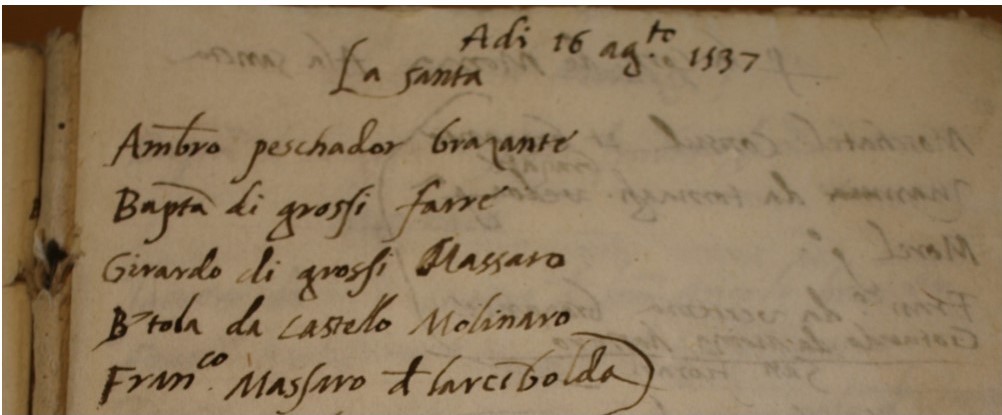 Adi 16 ag.to 1537
La santa
Ambro peschador brazante
Bapta di grossi farre
Girardo di grossi Massaro
Btola da castello Molinaro
Fran.co Massaro d larcibolda